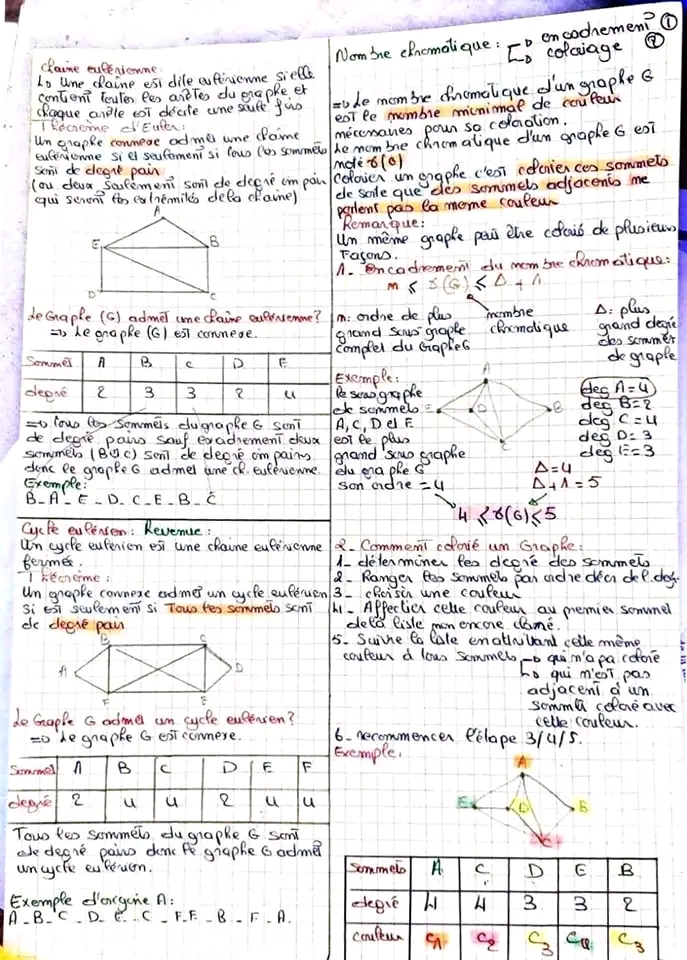 chaine eulérienne:
↳ Une chaine est dite eulérienne si elle
contient toutes les arêtes du graphe et
chaque arête est décrite une seule fois
Théorème d'Euler:
Un graphe connexe admet une chaine
eulérienne si et seulement si tous les sommets
sont de degré pair
(ou deux seulement sont de degré impair
qui seront les extrémités de la chaine)
A
E B
D C
Le Graphe (G) admet une chaine eulérienne?
⇒ Le graphe (G) est connexe.
Sommet A B C D E
degré 2 3 3 2 4
⇒ tous les sommets du graphe G sont
de degré pairs sauf exactement deux
sommets (B et C) sont de degré impairs
donc le graphe G admet une ch. eulérienne.
Exemple:
B - A - E - D - C - E - B - C
Cycle eulérien:
Un cycle eulérien est une chaine eulérienne
fermée.
Théorème:
Un graphe connexe admet un cycle eulérien
si est seulement si Tous les sommets sont
de degré pair
B C
A D
F E
Le Graphe G admet un cycle eulérien?
⇒ Le graphe G est connexe.
Sommet A B C D E F
degré 2 4 4 2 4 4
Tous les sommets du graphe G sont
de degré pairs donc le graphe G admet
un cycle eulérien.
Exemple d'origine A:
A - B - C - D - E - C - F - E - B - F - A.
Nombre chromatique: encadrement ①
coloiage ②
⇒ Le nombre chromatique d'un graphe G
est le nombre minimal de couleur
nécessaires pour sa coloration.
Le nombre chromatique d'un graphe G est
noté γ(G)
Colorier un graphe c'est colorier ces sommets
de sorte que des sommets adjacents ne
portent pas la meme couleur
Remarque:
Un même graphe peut être colorié de plusieurs
Façons.
1. Encadrement du nombre chromatique:
n ≤ γ(G) ≤ Δ + 1
n: ordre de plus
grand sous graphe
complet du Graphe G
nombre
chromatique
Δ: plus
grand degré
des sommet
de graphe
Exemple:
le sous graphe
de sommets
A, C, D et E
est le plus
grand sous graphe
du graphe G
son ordre = 4
A
E D B
C
deg A = 4
deg B = 2
deg C = 4
deg D = 3
deg E = 3
Δ = 4
Δ + 1 = 5
4 ≤ γ(G) ≤ 5
2 - Comment colorié un Graphe:
1 - déterminer les degré des sommets
2 - Ranger les sommets par ordre décr de l. deg.
3 - choisir une couleur
4 - Affecter cette couleur au premier sommet
de la liste non encore classé.
5 - Suivre la liste en attribuant cette même
couleur à tous sommets qui n'a pas colorié
qui n'est pas
adjacent d'un
sommet coloré avec
cette couleur.
6 - recommencer l'étape 3/4/5.
Exemple.
A
E D B
C
Sommets A C D E B
degré 4 4 3 3 2
couleur C1 C2 C3 C4 C3